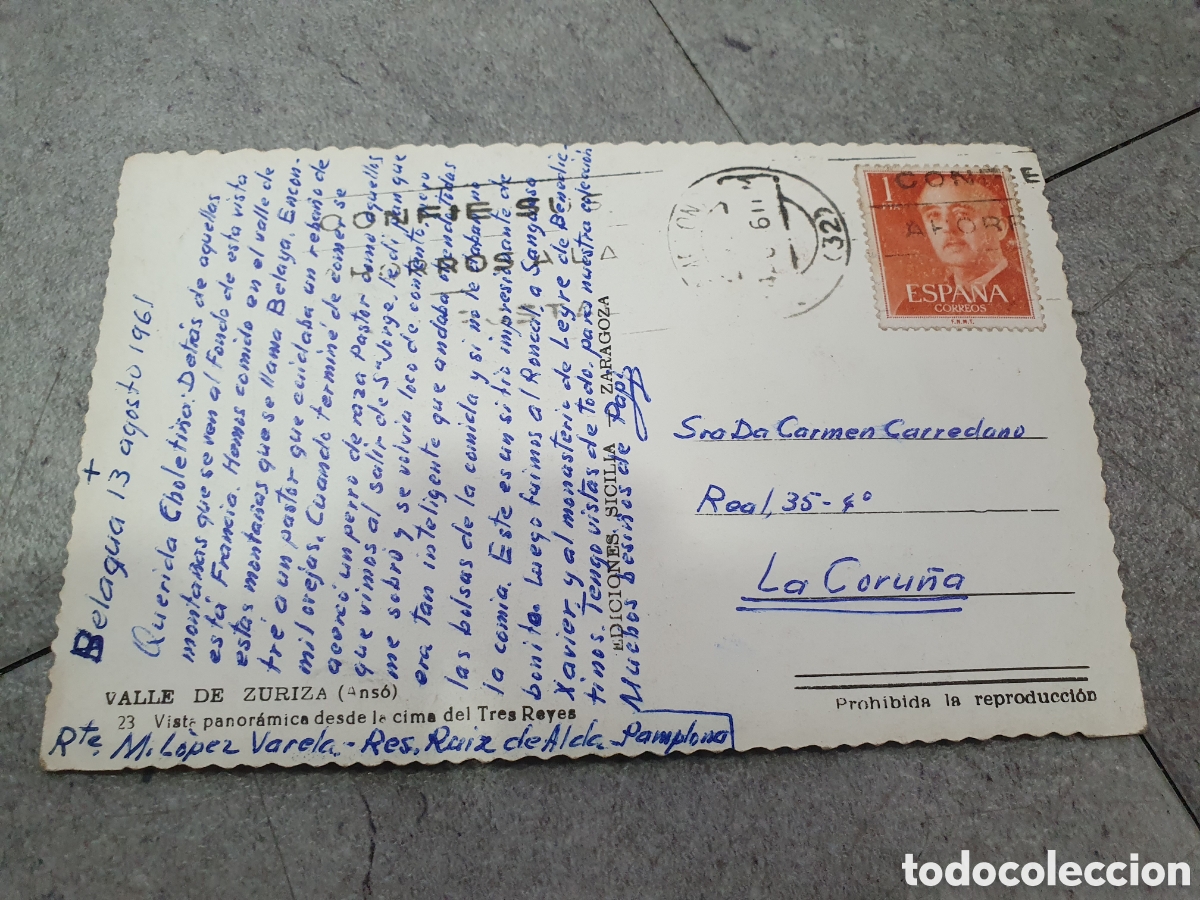 +
Belagua 13 agosto 1961
Querida Choletina: Detrás de aquellas
montañas que se ven al Fondo de esta vista
está Francia. Hemos comido en el valle de
estas montañas que se llama Belaya. Encon
tré a un pastor que cuidaba un rebaño de
mil ovejas. Cuando terminé de comer se
acercó un perro de raza pastor como aquellos
que vimos al salir de S. Jorge. le di pan que
me sobró y se volvía loco de contento, pero
era tan inteligente que andaba oliendo todas
las bolsas de la comida y si no le tapan
la comía. Este es un sitio impresionante de
bonito. Luego fuimos al Roncal, a Sangüesa
Xavier y al monasterio de Leyre de Benedic-
tinos. Tengo vistas de todo para nuestra colección
Muchos besiños de Papi
VALLE DE ZURIZA (Ansó)
23 Vista panorámica desde la cima del Tres Reyes
Rte. M. López Varela.- Res. Ruiz de Alda - Pamplona
EDICIONES SICILIA ZARAGOZA
(32)
1
PTA
ESPAÑA
CORREOS
F.N.M.T.
Sra Da Carmen Carredano
Real, 35-4º
La Coruña
Prohibida la reproducción
todocoleccion